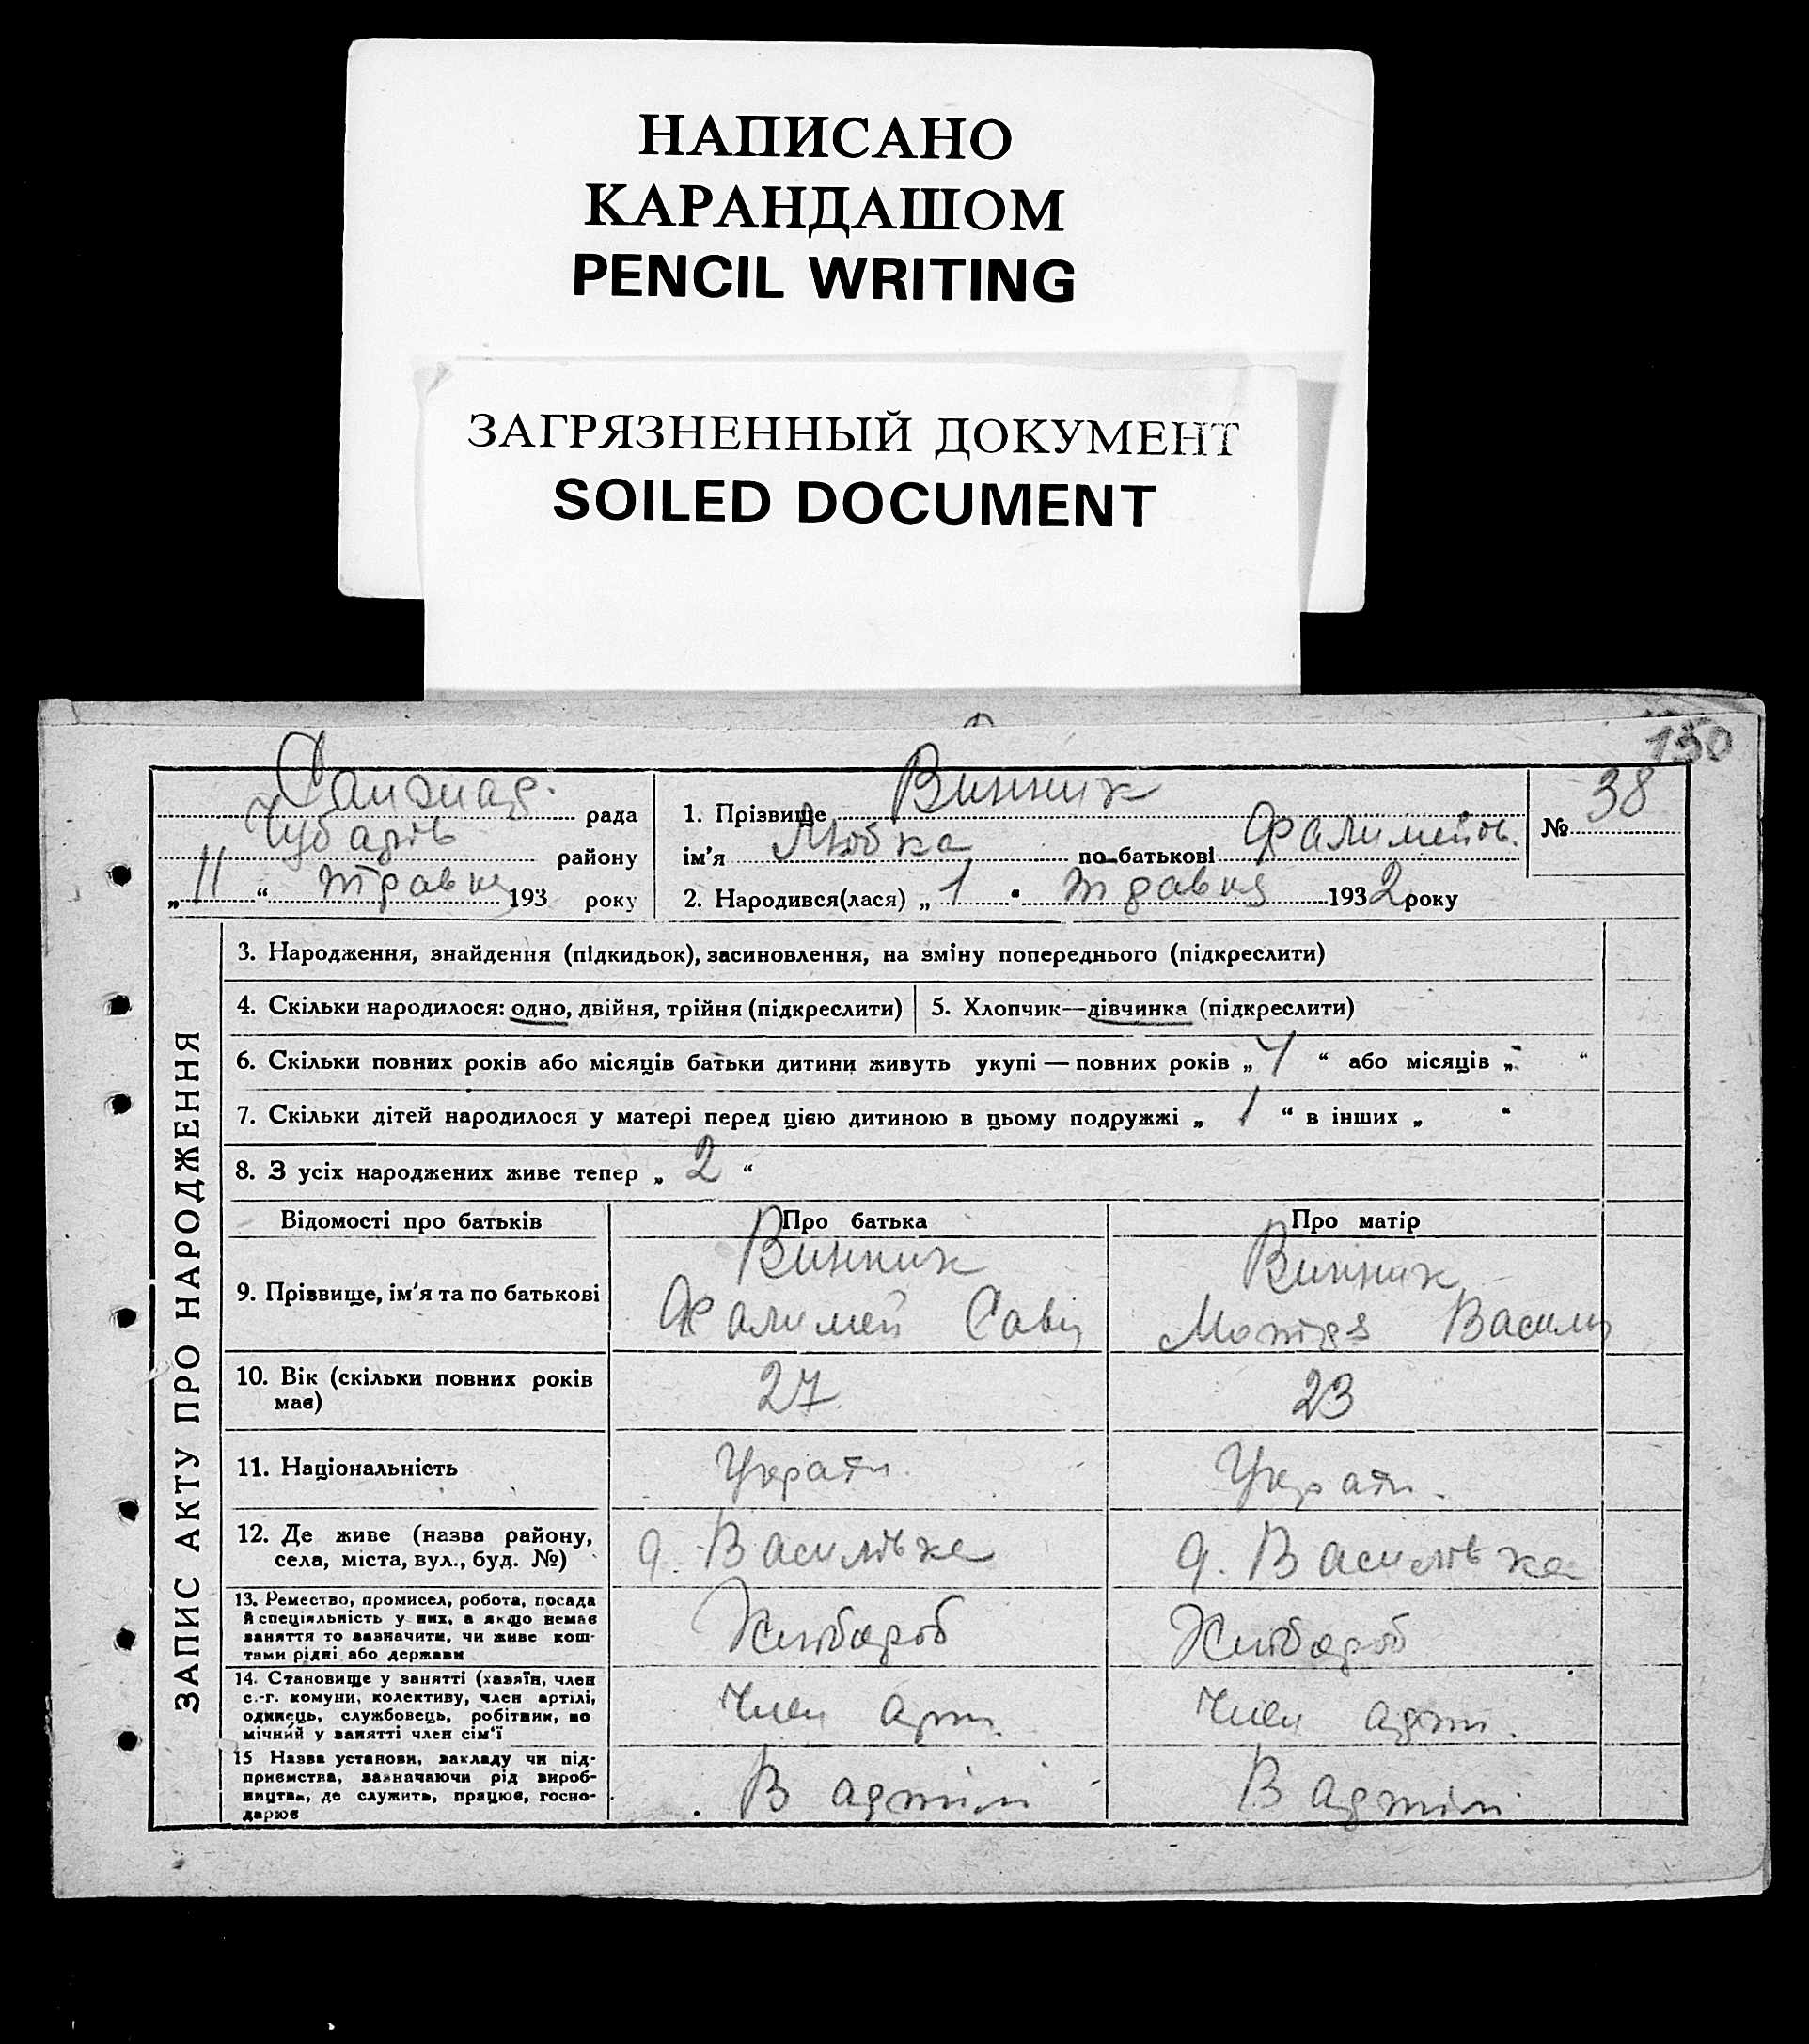 НАПИСАНО
КАРАНДАШОМ
PENCIL WRITING
ЗАГРЯЗНЕННЫЙ ДОКУМЕНТ
SOILED DOCUMENT
150
рада
Чубарів району
„11“ травня 193 року
1. Прізвище Винник
ім'я Любка по-батькові
2. Народився(лася) „1“ травня 1932 року
№ 38
ЗАПИС АКТУ ПРО НАРОДЖЕННЯ
3. Народження, знайдення (підкидьок), засиновлення, на зміну попереднього (підкреслити)
4. Скільки народилося: одно, двійня, трійня (підкреслити)
5. Хлопчик—дівчинка (підкреслити)
6. Скільки повних років або місяців батьки дитини живуть укупі — повних років „4“ або місяців „-“
7. Скільки дітей народилося у матері перед цією дитиною в цьому подружжі „1“ в інших „ “
8. З усіх народжених живе тепер „2“
Відомості про батьків Про батька Про матір
9. Прізвище, ім'я та по батькові
Винник
Савн
Винник
Мотря Васили
10. Вік (скільки повних років має)
27
23
11. Національність
Украін.
Украін.
12. Де живе (назва району,
села, міста, вул., буд. №)
Василівка
Василівка
13. Ремество, промисел, робота, посада
й спеціяльність у них, а якщо немає
заняття то зазначити, чи живе кош-
тами рідні або держави
Хлібороб
Хлібороб
14. Становище у занятті (хазяїн, член
с.-г. комуни, колективу, член артілі,
одинець, службовець, робітник, по
мічний у занятті член сім'ї
Член арт.
Член арт.
15 Назва установи, закладу чи під-
приємства, зазначаючи рід вироб-
ництва, де служить, працює, госпо-
дарює
В артілі
В артілі